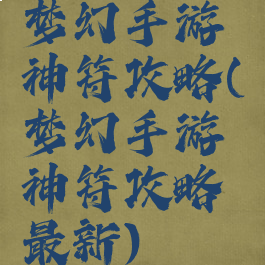 梦幻手游
神符攻略(
梦幻手游
神符攻略
最新)